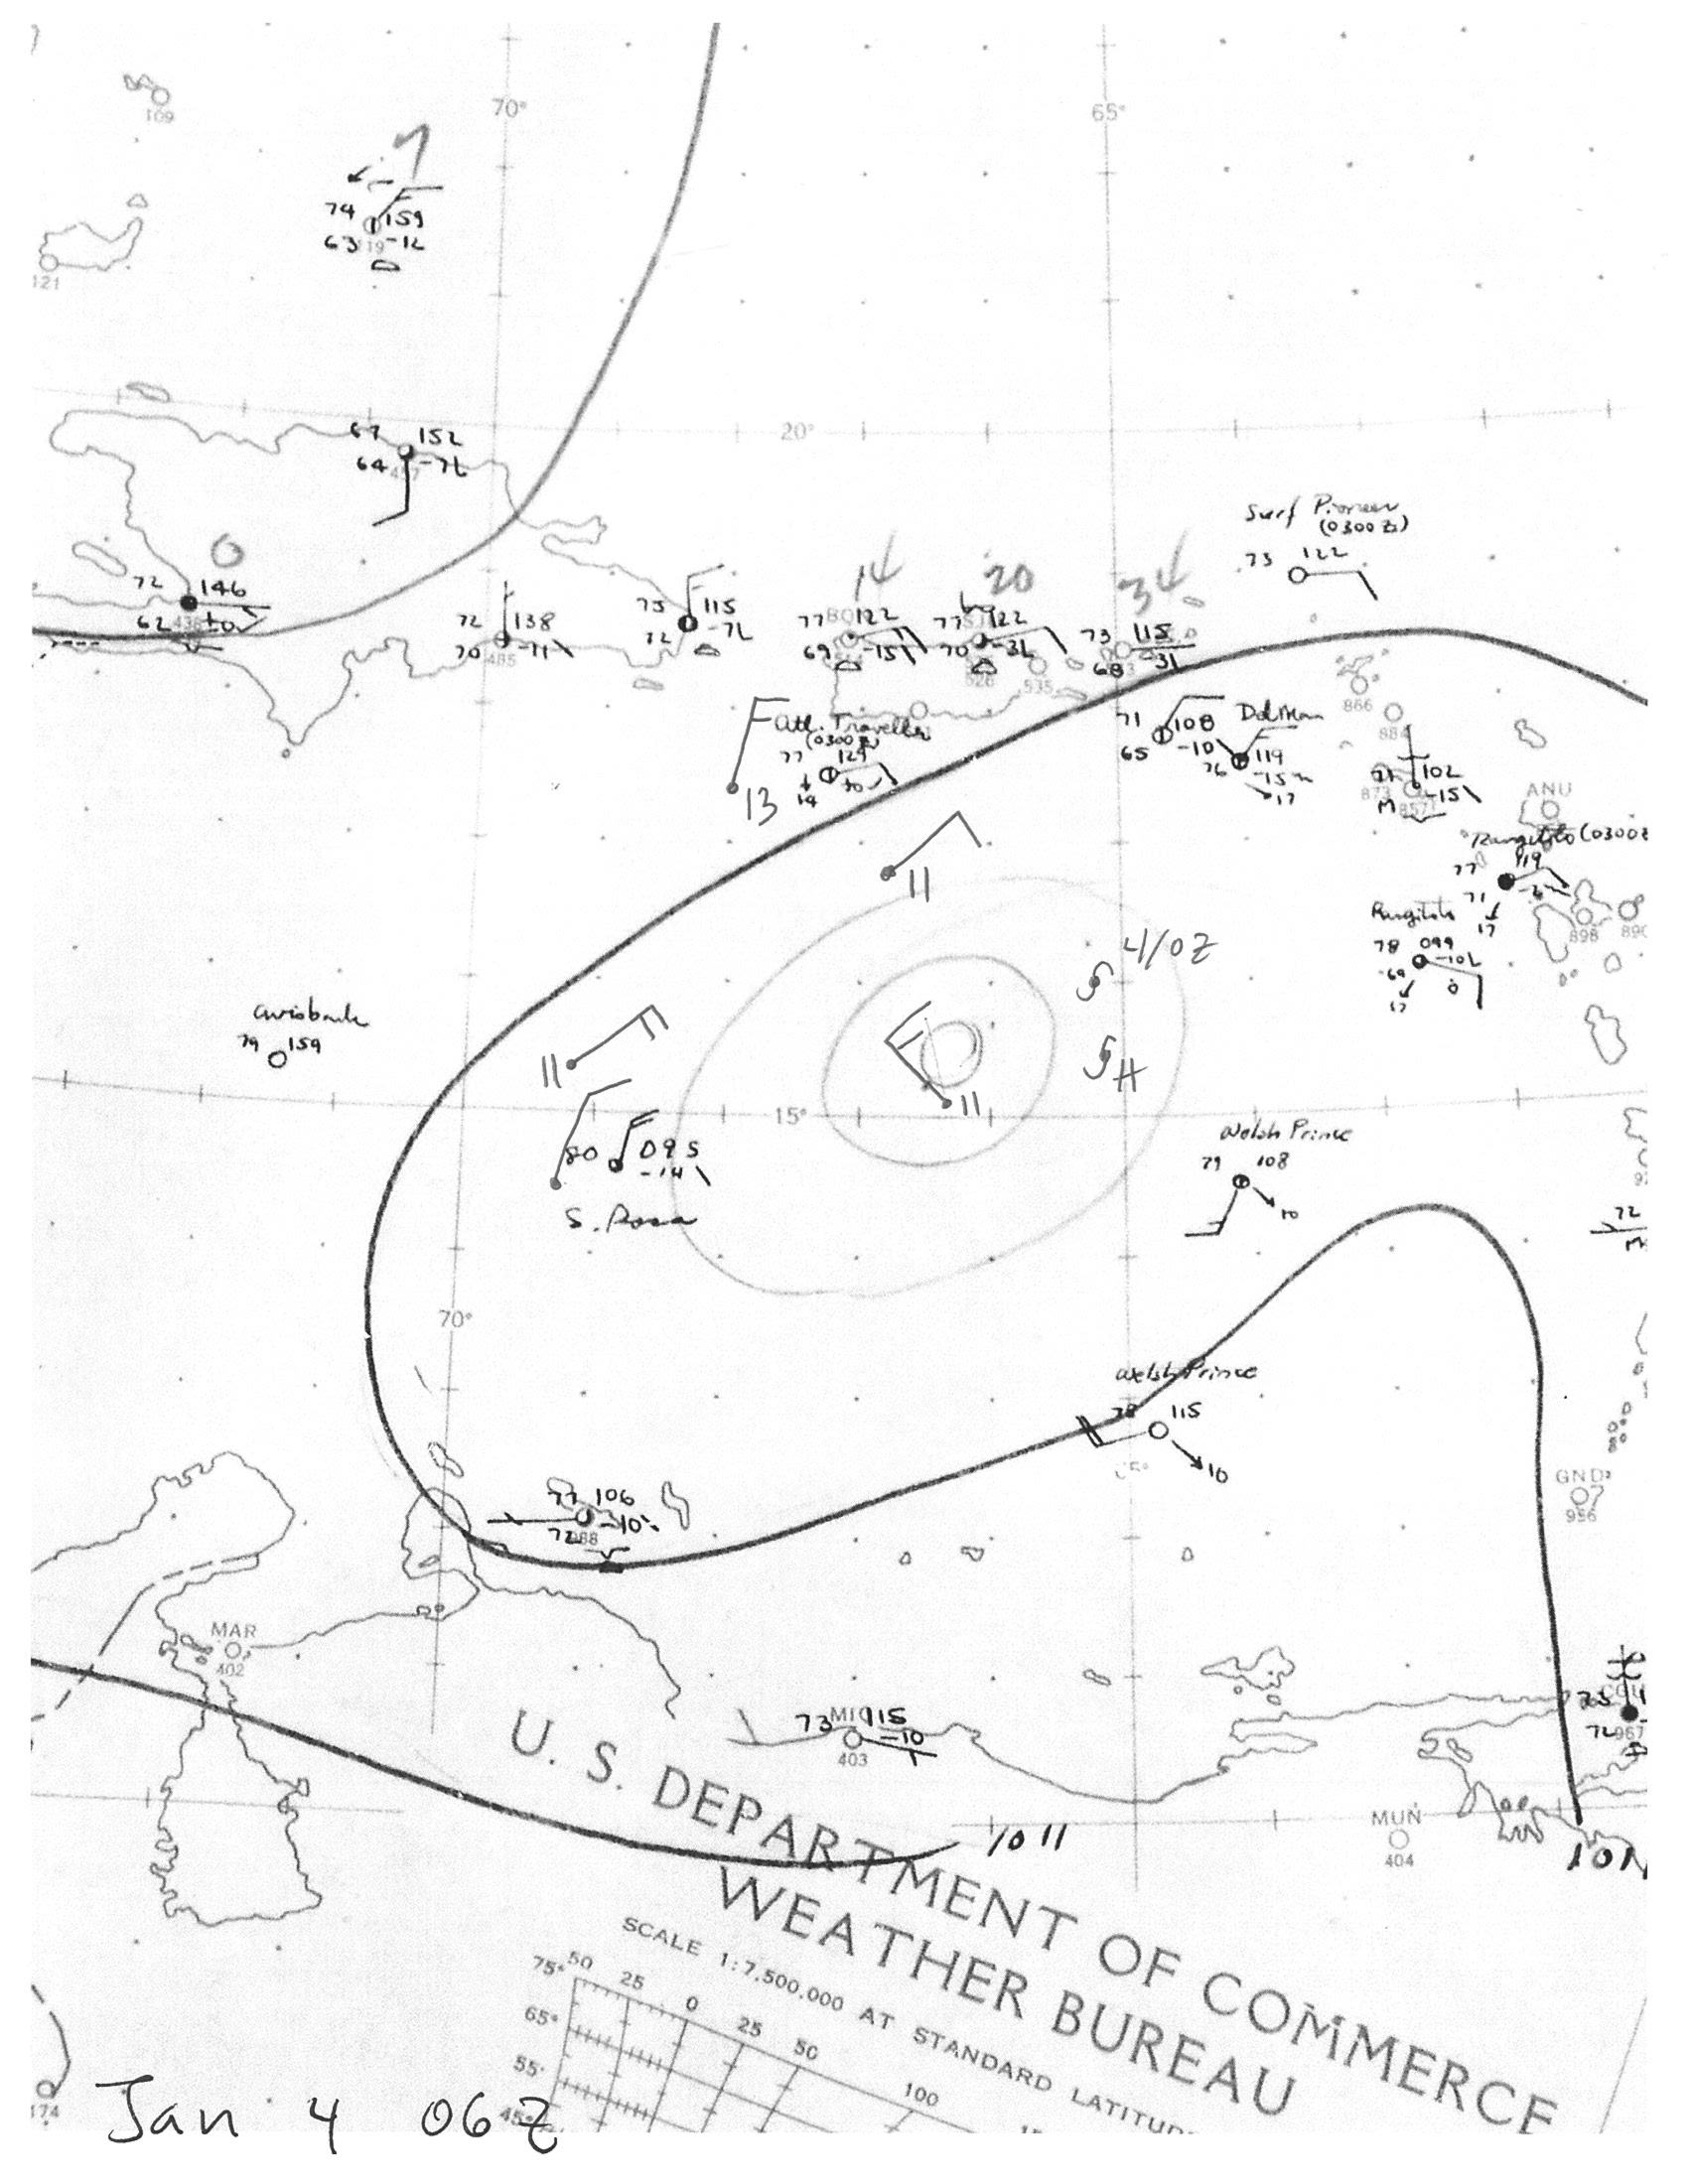 70°
65°
109
74 159
63 19 -12
121
20°
67 152
64 -7
Surf Pioneer
(0300Z)
73 122
14 20 34
72 146
62
72 138
70 485 -11
75 115
72 -7
77 122
69 -15
77 122
70 -3
528
535
73 115
68 31
866
884
Atl. Traveller
(0300Z)
77 129
14
13
71 108
65 -10
Dolman
76 119
-15
17
71 102
M 857 -15
873
ANU
Rangitoto (0300Z
77 119
71
17
11
4/0Z
Rangitoto
78 099
69 -10
17
898
890
79 159
11
11
H
15°
80 095
-14
S. Rosa
Welsh Prince
79 108
10
72
70°
Welsh Prince
78 115
10
65°
77 106
72 -10
GND
956
MAR
402
73 MIQ 115
-10
403
75
72 967
U. S. DEPARTMENT OF COMMERCE
WEATHER BUREAU
1011
MUN
404
101
SCALE 1:7,500,000 AT STANDARD LATITUD
75° 50 25 0 25 50 100
65°
55°
45°
174
Jan 4 06Z